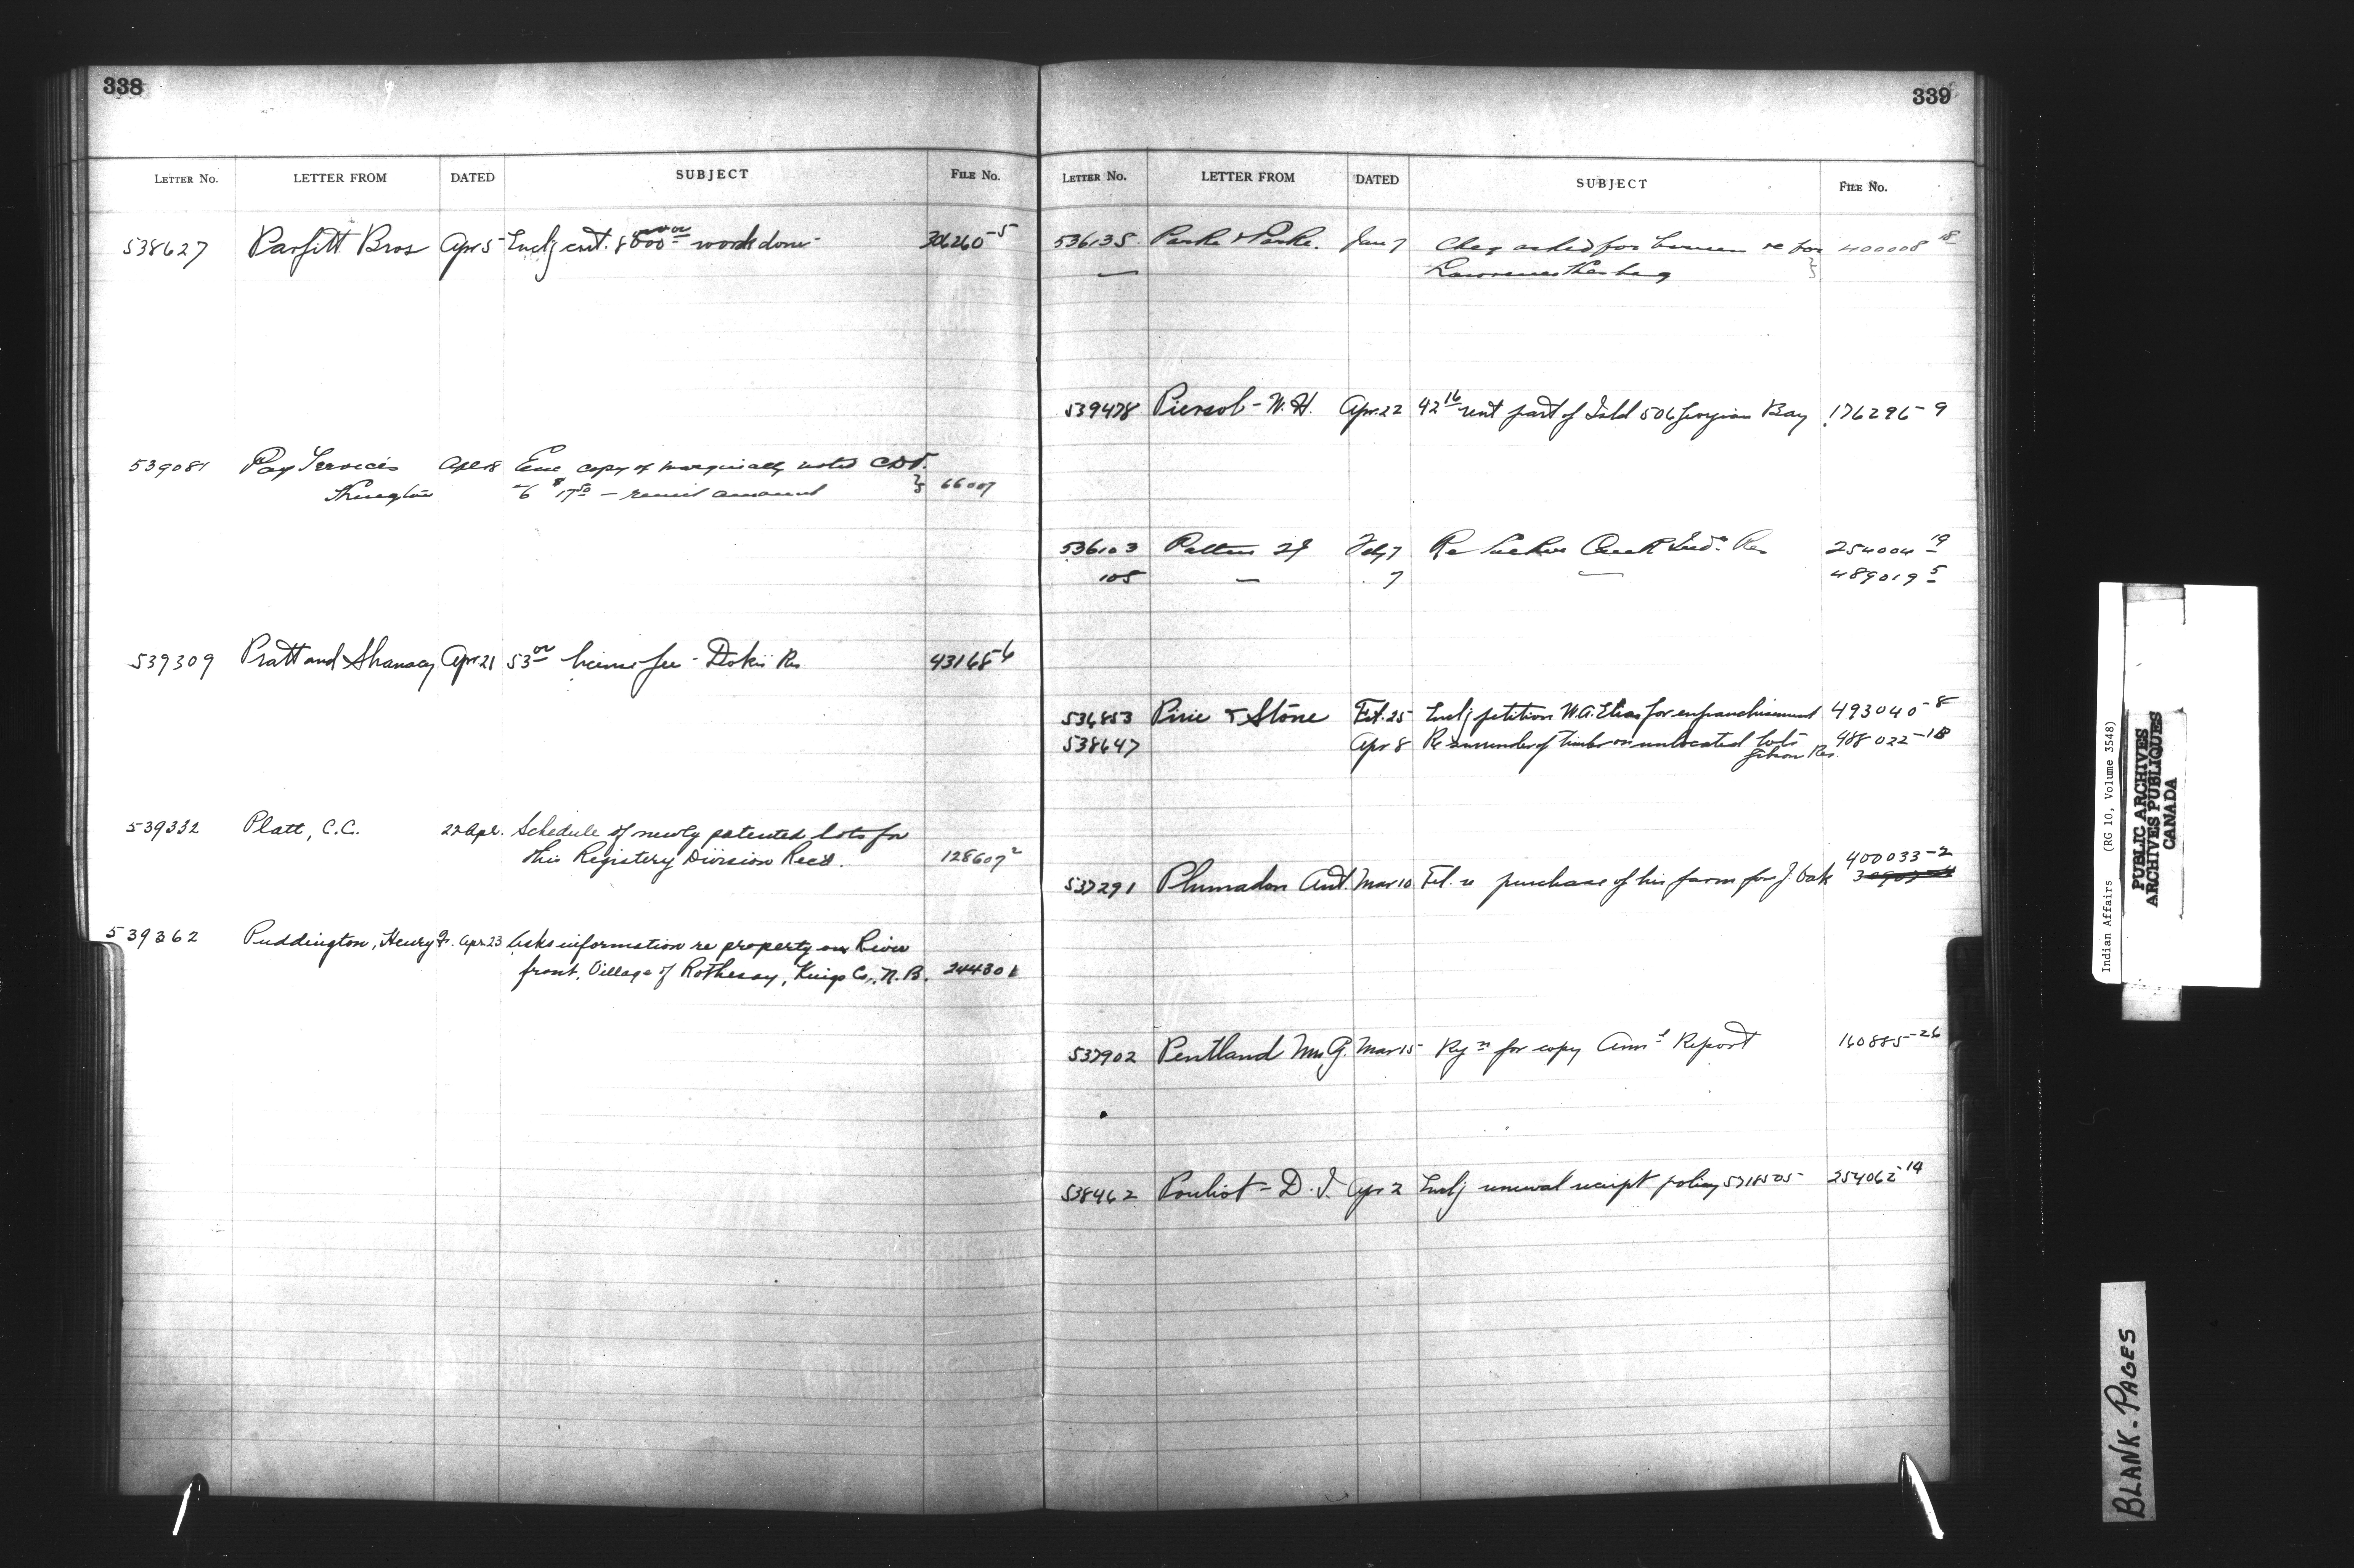 338
LETTER NO. LETTER FROM DATED SUBJECT FILE NO.
538627 Parfitt Bros Apr 5 Enclg cert. work done 306260-5
539081 Pay Services Apl 18 Enc copy of marginally noted
$17.50 — remit amount 66007
539309 Pratt and Shanacy Apr 21 53.00 license fee - Dokis Res 43168-6
539332 Platt, C.C. 22 Apl. Schedule of newly patented lots for
this Registery Division Rec'd. 128607 2
539362 Puddington, Henry F. Apr. 23 Asks information re property on River
front, Village of Rothesay, Kings Co., N.B. 244301
339
LETTER NO. LETTER FROM DATED SUBJECT FILE NO.
536135 Parke & Parke. Jan 7 asked for re 400008 18
539478 Piersol - W.H. Apr. 22 42 16 rent part of Isld 506 Georgian Bay 176296-9
536103 Feby 7 Re Creek Ind. Res 254004 19
105 — 7 — 489019 5
536853 Pirie & Stone Feb. 25 Enclg petition W.A. Elias for enfranchisement 493040-8
538647 Apr 8 Re surrender of timber on unlocated lots 488022-18
Gibson Res.
400033-2
537291 Plumadon Ant. Mar 10 purchase of his farm for J. Oak
537902 Pentland Mar 15 for copy Ann'l Report 160885-26
538462 Pouliot - D.J. Apr 2 Enclg renewal receipt policy 254062-14
Indian Affairs (RG 10, Volume 3548)
PUBLIC ARCHIVES
ARCHIVES PUBLIQUES
CANADA
BLANK-PAGES